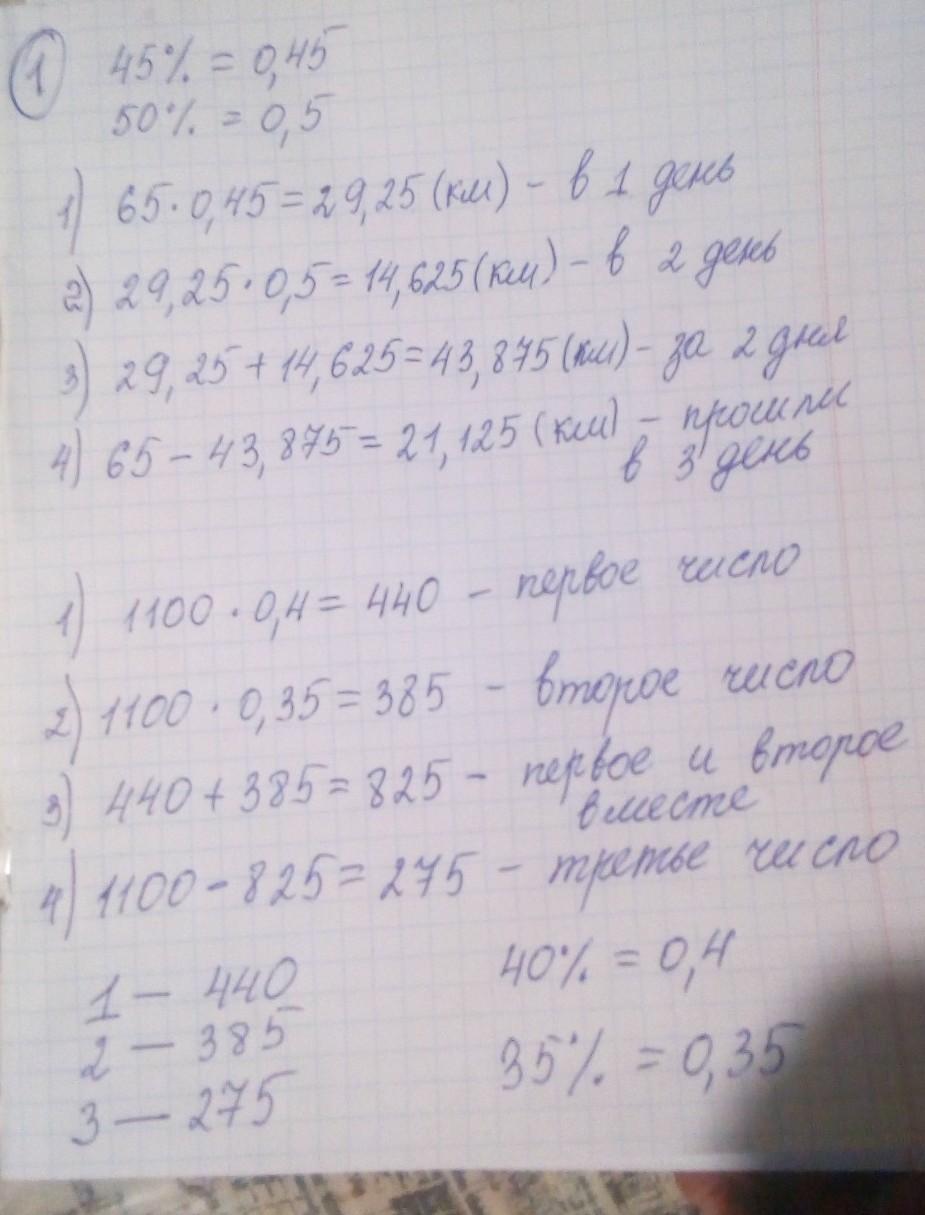 1
45% = 0,45
50% = 0,5
1) 65·0,45=29,25(км) - в 1 день
2) 29,25·0,5=14,625(км) - в 2 день
3) 29,25+14,625=43,875(км) - за 2 дня
4) 65-43,875=21,125(км) - прошли
в 3 день
1) 1100·0,4=440 - первое число
2) 1100·0,35=385 - второе число
3) 440+385=825 - первое и второе
вместе
4) 1100-825=275 - третье число
1 - 440
2 - 385
3 - 275
40% = 0,4
35% = 0,35